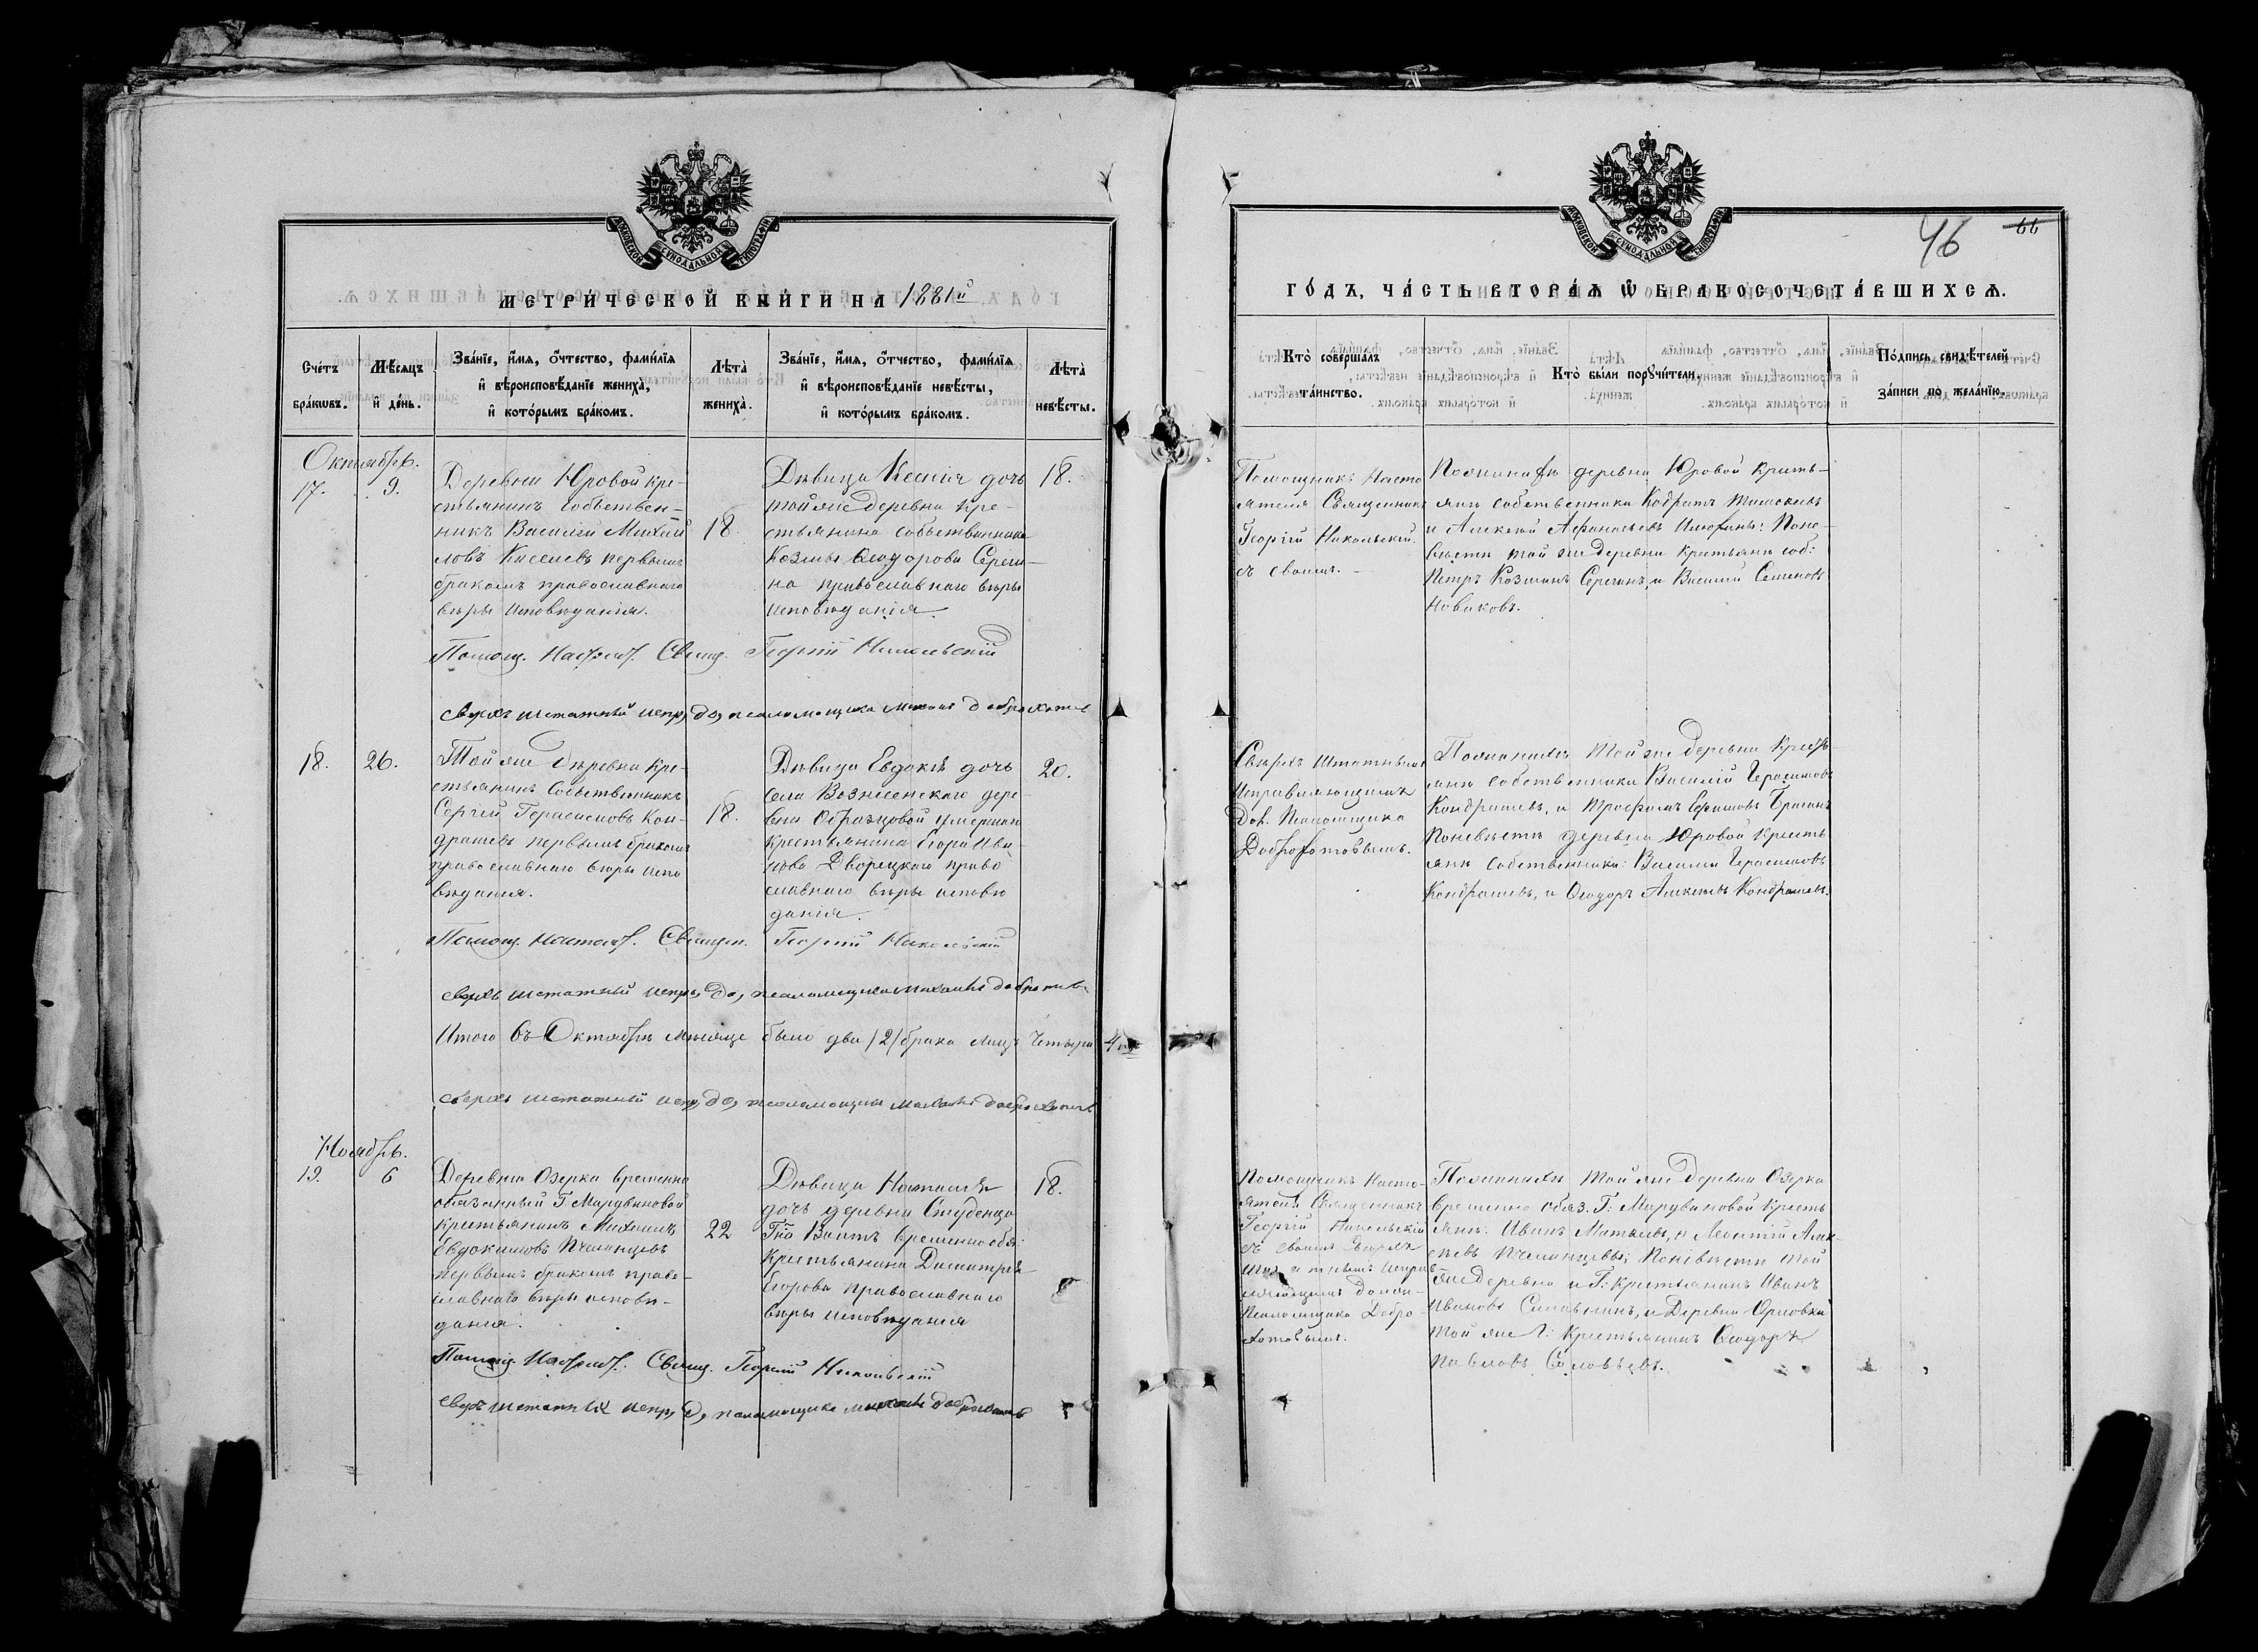 МОСКОВСКОЙ СУНОДАЛЬНОЙ ТИПОГРАФІИ
МЕТРИ́ЧЕСКОЙ КНИ́ГИ НА 1881й
Сче́тъ бра́кѡвъ.
Мѣ́сяцъ и҆ де́нь.
Зва́нїе, и҆́мѧ, ѻ҆́тчество, фами́лїѧ и҆ вѣроисповѣ́данїе жениха̀, и҆ кото́рымъ бра́комъ.
Лѣ́та жениха̀.
Зва́нїе, и҆́мѧ, ѻ҆́тчество, фами́лїѧ и҆ вѣроисповѣ́данїе невѣ́сты, и҆ кото́рымъ бра́комъ.
Лѣ́та невѣ́сты.
Октябрь.
17.
9.
Деревни Юровой кре-
стьянинъ собствен-
никъ Василій Михай
ловъ Киселевъ первымъ
бракомъ православнаго
вѣры исповѣданія.
18.
Дѣвица Ксенія дочь
той же деревни кре-
стьянина собственника
Козмы Ѳеодорова Сереги-
на православнаго вѣры
исповѣданія.
18.
Помощ. Настоят. Свящ. Георгій Никольскій
сверхъ штатный испр, до, псаломщика Михаилъ Доброхотов
18.
26.
Той же деревни кре-
стьянинъ собственникъ
Сергій Герасимовъ Кон-
драшевъ первымъ бракомъ
православнаго вѣры испо
вѣданія.
18.
Дѣвица Евдокія дочь
села Вознесенскаго дере-
вни Образцовой умершаго
крестьянина Егора Ива
нова Дворецкаго право
славнаго вѣры исповѣ
данія.
20.
Помощ. Настоят. Священ. Георгій Никольскій
сверхъ штатный испр, до, псаломщика Михаилъ Доброхотов
Итого въ Октябрѣ мѣсяце было два /2/ брака лицъ четыре 4.
сверхъ штатный испр, до, псаломщика Михаилъ Доброхотовъ
Ноябрь.
19.
6
Деревни Озерки временно
обязанный Г Мардвиновой
крестьянинъ Михаилъ
Евдокимовъ Пчелинцевъ
первымъ бракомъ право-
славнаго вѣры исповѣ-
данія.
22
Дѣвица Наталія
дочь деревни Студенца
Гна Виттъ временно обя:
крестьянина Димитрія
Егорова православнаго
вѣры исповѣданія
18.
Помощ. Настоят. Свящ. Георгій Никольскій
сверхъ штатный испр, до, псаломщика Михаилъ Доброхотовъ
МОСКОВСКОЙ СУНОДАЛЬНОЙ ТИПОГРАФІИ
46
66
ГО́ДЪ, ЧА́СТЬ ВТОРА́Я Ѡ҆ БРАКОСОЧЕТА́ВШИХСЯ.
Кто̀ соверша́лъ та́инство.
Кто̀ бы́ли порꙋчи́тели.
По́дпись свидѣ́телей за́писи по жела́нїю.
Помощникъ Насто
ятеля Священникъ
Георгій Никольскій.
съ своимъ.
По женихѣ деревни Юровой кресть-
яне собственники Кодратъ Тимофеевъ
и Алексѣй Афанасьевъ Илюхины: По не-
вѣстѣ той же деревни крестьяне соб:
Петръ Козминъ Серегинъ, и Василій Семеновъ
Новиковъ.
Сверхъ штатнымъ
исправляющимъ
Дол. Псаломщика
Доброхотовымъ.
По женихѣ той же деревни кресть-
яне собственники Василій Герасимовъ
Кондрашевъ, и Трофимъ Ефимовъ
По невѣстѣ деревни Юровой кресть
яне собственники: Василій Герасимовъ
Кондрашевъ, и Ѳеодоръ Алексѣевъ Кондрашевъ.
Помощникъ Насто-
ятеля Священникъ
Георгій Никольскій
съ своимъ сверхъ
штатнымъ исправ-
ляющимъ должн-
псаломщика Добро-
хотовымъ.
По женихѣ той же деревни Озерка
временно обяз. Г: Мардвиновой кресть
яне: Иванъ Матвѣевъ, и Леонтій Алек-
сѣевъ Пчелинцевы; По невѣстѣ той
же деревни и Г: крестьянинъ Иванъ
Ивановъ и деревни Орловки
той же Г: крестьянинъ Ѳеодоръ
Павловъ Соловьевъ.